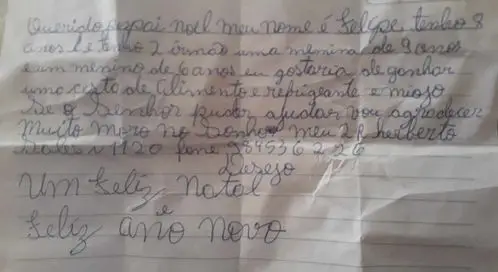 Querido papai noel meu nome é Felipe tenho 8
anos e tenho 2 irmão uma menina de 9 anos
e um menino de 6 anos eu gostaria de ganhar
uma cesta de alimento e refrigeante e miojo
Se o Senhor puder ajudar vou agradecer
Muito moro no Sonho meu 2 R herberto
1120 fone 984536226
Desejo
Um feliz natal
e
Feliz ano Novo